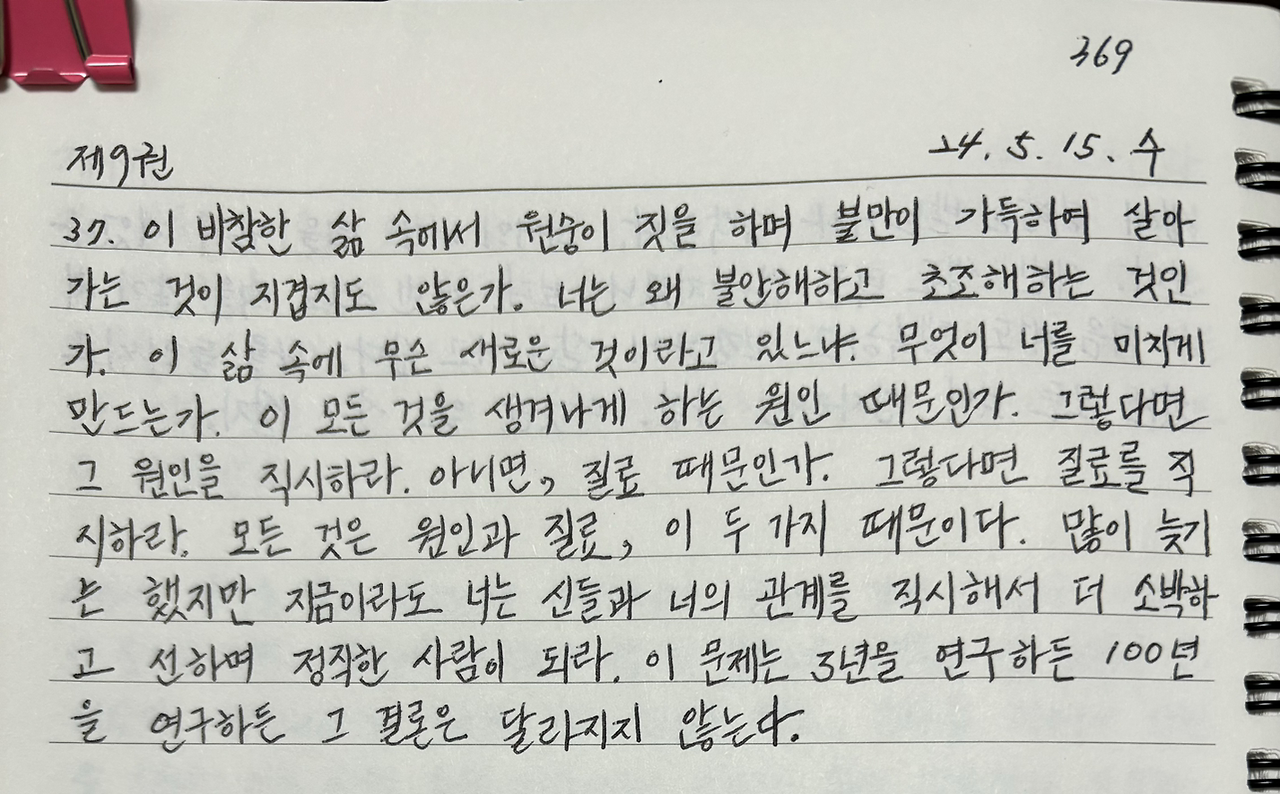 369
제9권 24. 5. 15. 수
37. 이 비참한 삶 속에서 원숭이 짓을 하며 불만이 가득하여 살아
가는 것이 지겹지도 않은가. 너는 왜 불안해하고 초조해하는 것인
가. 이 삶 속에 무슨 새로운 것이라고 있느냐. 무엇이 너를 미치게
만드는가. 이 모든 것을 생겨나게 하는 원인 때문인가. 그렇다면
그 원인을 직시하라. 아니면, 질료 때문인가. 그렇다면 질료를 직
시하라. 모든 것은 원인과 질료, 이 두 가지 때문이다. 많이 늦기
는 했지만 지금이라도 너는 신들과 너의 관계를 직시해서 더 소박하
고 선하며 정직한 사람이 되라. 이 문제는 3년을 연구하든 100년
을 연구하든 그 결론은 달라지지 않는다.